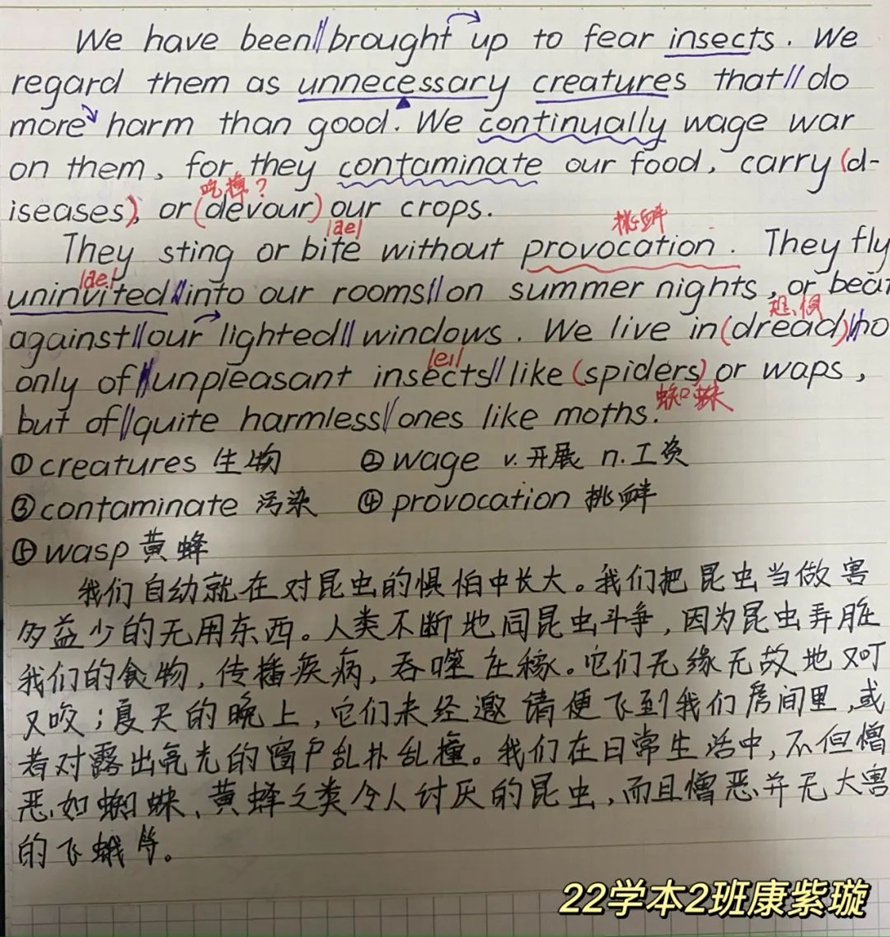 We have been//brought up to fear insects. We
regard them as unnecessary creatures that//do
more harm than good. We continually wage war
on them, for they contaminate our food, carry (d-
吃掉?
iseases), or (devour) our crops.
|ae| 挑衅
They sting or bite without provocation. They fly
|ae|
uninvited//into our rooms//on summer nights, or beat
against//our lighted//windows. We live in (dread)//no
|ei|
only of//unpleasant insects//like (spiders) or waps,
蜘蛛
but of//quite harmless/ones like moths.
①creatures 生物 ②wage v.开展 n.工资
③contaminate 污染 ④provocation 挑衅
⑤wasp 黄蜂
我们自动就在对昆虫的惧怕中长大。我们把昆虫当做害
多益少的无用东西。人类不断地同昆虫斗争,因为昆虫弄脏
我们的食物,传播疾病,吞噬庄稼。它们无缘无故地又叮
又咬;夏天的晚上,它们未经邀请便飞到我们房间里,或
者对露出亮光的窗户乱扑乱撞。我们在日常生活中,不但憎
恶如蜘蛛、黄蜂之类令人讨厌的昆虫,而且憎恶并无大害
的飞蛾等。
22学本2班康紫璇